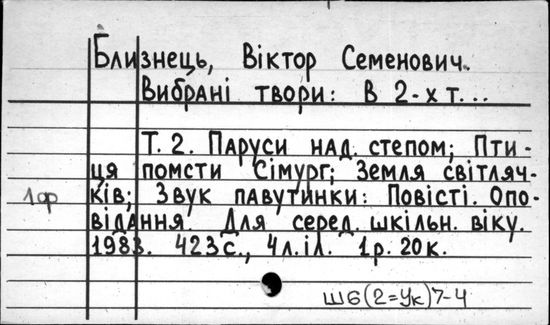 Близнець, Віктор Семенович.
Вибрані твори: В 2-х т...
Т. 2. Паруси над степом; Пти-
ця помсти Сімург; Земля світляч-
ків; Звук павутинки: Повісті. Опо-
1ор
відання. Для серед. шкільн. віку.
1983. 423с., 4л.іл. 1р. 20к.
Ш6(2=Ук)7-4